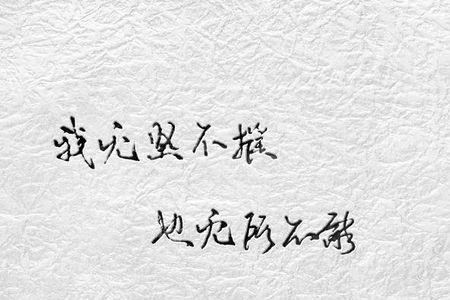 我无坚不摧
也无所不能